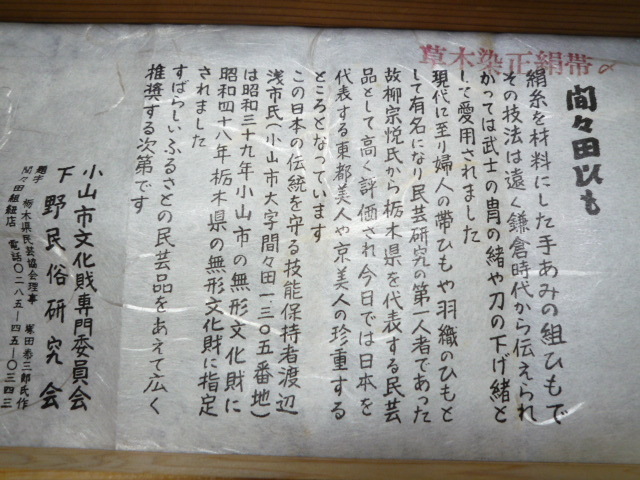 草木染正絹帯
間々田ひも
絹糸を材料にした手あみの組ひもで
その技法は遠く鎌倉時代から伝えられ
かつては武士の冑の緒や刀の下げ緒と
して愛用されました
現代に至り婦人の帯ひもや羽織のひもと
して有名になり民芸研究の第一人者であった
故柳宗悦氏から栃木県を代表する民芸
品として高く評価され今日では日本を
代表する東都美人や京美人の珍重する
ところとなっています
この日本の伝統を守る技能保持者渡辺
浅市氏(小山市大字間々田一三〇五番地)
は昭和三十九年小山市の無形文化財に
昭和四十八年栃木県の無形文化財に指定
されました
すばらしいふるさとの民芸品をあえて広く
推奨する次第です
小山市文化財専門委員会
下野民俗研究会
題字 栃木県民芸協会理事 塚田泰三郎氏作
間々田組紐店 電話〇二八五-四五-〇三四三